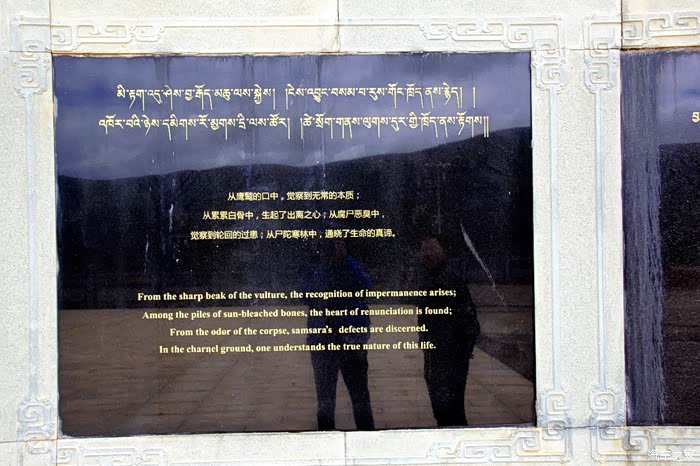 མི་རྟག་འདུ་ཤེས་བྱ་རྒོད་མཆུ་ལས་སྐྱེས། །ངེས་འབྱུང་བསམ་པ་རུས་གོང་ཁྲོད་ནས་རྙེད། །
འཁོར་བའི་ཉེས་དམིགས་རོ་མྱགས་དྲི་ལས་ཚོར། །ཚེ་སྲོག་གནས་ལུགས་དུར་གྱི་ཁྲོད་ནས་རྟོགས།།
从鹰鹫的口中，觉察到无常的本质；
从累累白骨中，生起了出离之心；从腐尸恶臭中，
觉察到轮回的过患；从尸陀寒林中，通晓了生命的真谛。
From the sharp beak of the vulture, the recognition of impermanence arises;
Among the piles of sun-bleached bones, the heart of renunciation is found;
From the odor of the corpse, samsara's defects are discerned.
In the charnel ground, one understands the true nature of this life.
汽车之家